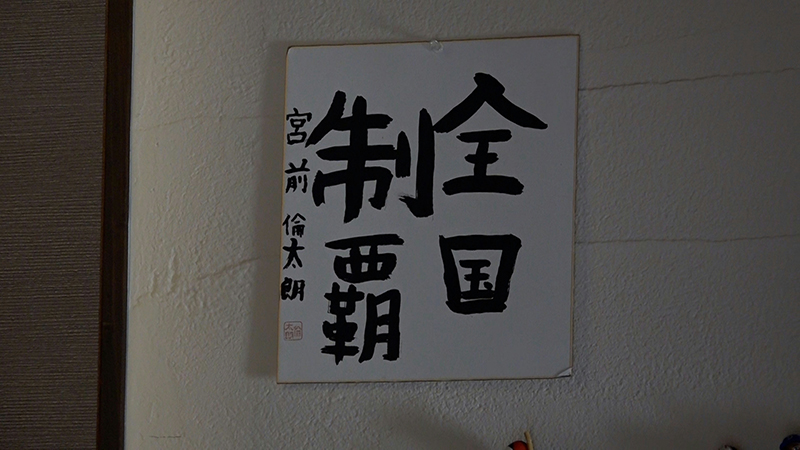 全国
制覇
宮前倫太朗